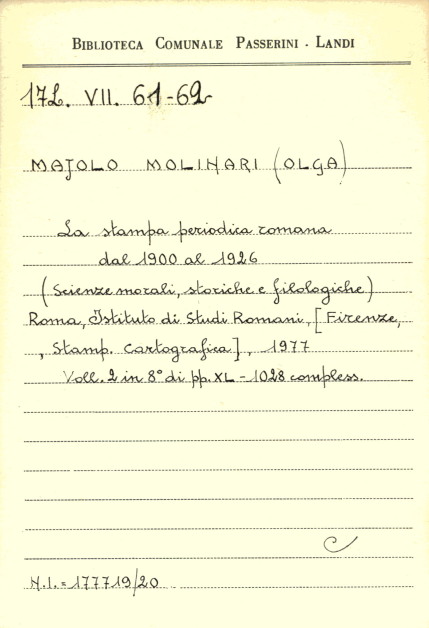 BIBLIOTECA COMUNALE PASSERINI - LANDI
17L. VII. 61-62
MAJOLO MOLINARI (OLGA)
La stampa periodica romana
dal 1900 al 1926
(Scienze morali, storiche e filologiche)
Roma, Istituto di Studi Romani, [Firenze,
, Stamp. Cartografica], 1977
Voll. 2 in 8° di pp. XL - 1028 compless.
N.I. = 177719/20